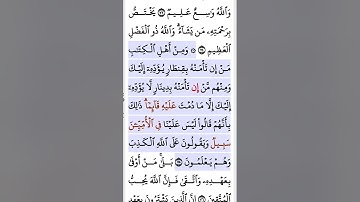 وَٱللَّهُ وَٰسِعٌ عَلِيمٌ ﴿٧٣﴾ يَخْتَصُّ
بِرَحْمَتِهِۦ مَن يَشَآءُ ۗ وَٱللَّهُ ذُو ٱلْفَضْلِ
ٱلْعَظِيمِ ﴿٧٤﴾ ۞ وَمِنْ أَهْلِ ٱلْكِتَٰبِ
مَنْ إِن تَأْمَنْهُ بِقِنطَارٍ يُؤَدِّهِۦٓ إِلَيْكَ
وَمِنْهُم مَّنْ إِن تَأْمَنْهُ بِدِينَارٍ لَّا يُؤَدِّهِۦٓ
إِلَيْكَ إِلَّا مَا دُمْتَ عَلَيْهِ قَآئِمًا ۗ ذَٰلِكَ
بِأَنَّهُمْ قَالُوا۟ لَيْسَ عَلَيْنَا فِى ٱلْأُمِّيِّـۧنَ
سَبِيلٌ وَيَقُولُونَ عَلَى ٱللَّهِ ٱلْكَذِبَ
وَهُمْ يَعْلَمُونَ ﴿٧٥﴾ بَلَىٰ مَنْ أَوْفَىٰ
بِعَهْدِهِۦ وَٱتَّقَىٰ فَإِنَّ ٱللَّهَ يُحِبُّ
ٱلْمُتَّقِينَ ﴿٧٦﴾ إِنَّ ٱلَّذِينَ يَشْتَرُونَ بِعَهْدِ